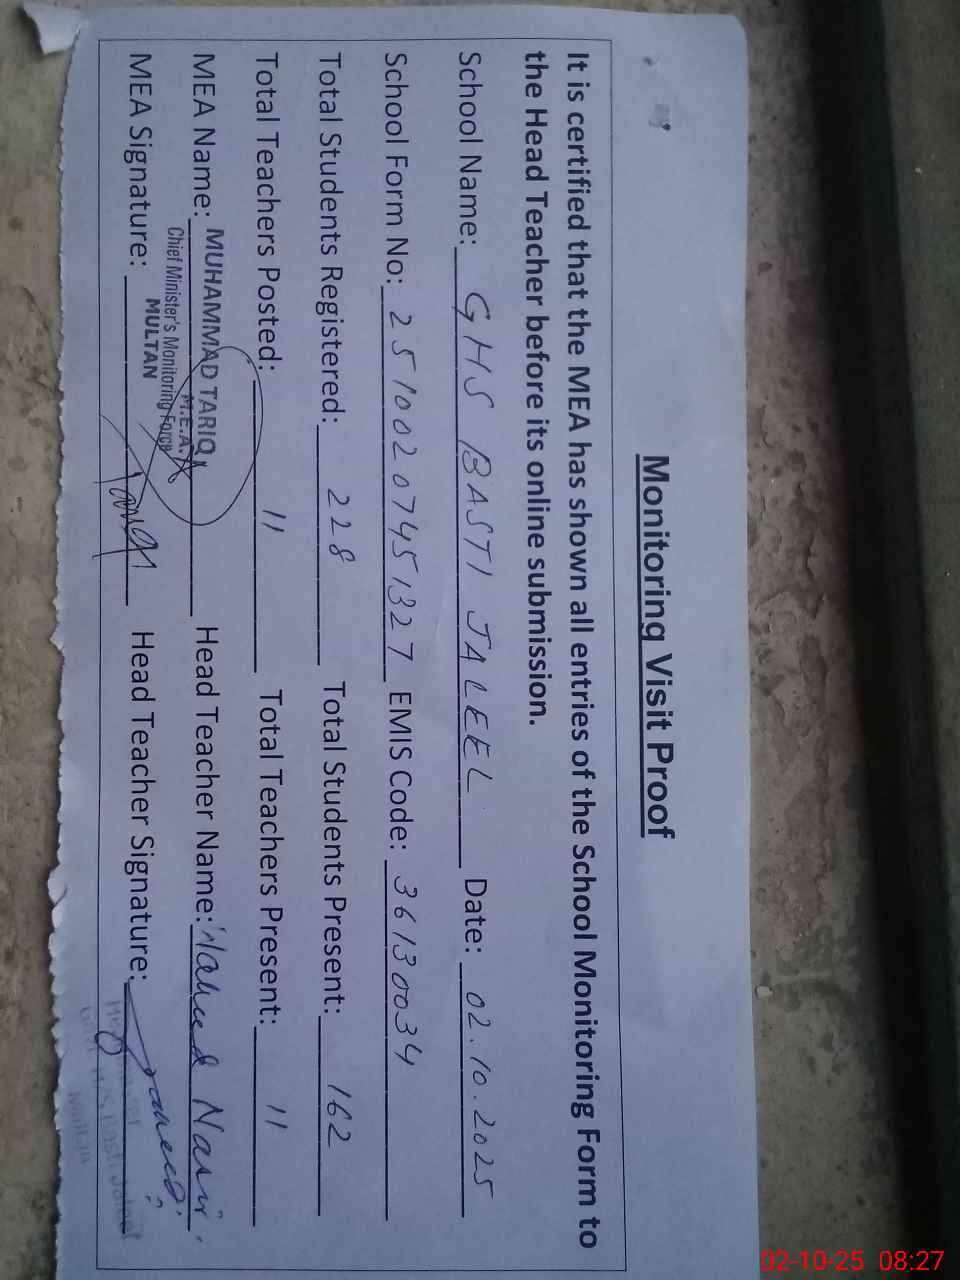 Monitoring Visit Proof
It is certified that the MEA has shown all entries of the School Monitoring Form to
the Head Teacher before its online submission.
School Name: GHS BASTI JALEEL Date: 02.10.2025
School Form No: 25100207451327 EMIS Code: 36130034
Total Students Registered: 228 Total Students Present: 162
Total Teachers Posted: 11 Total Teachers Present: 11
MEA Name: MUHAMMAD TARIQ Head Teacher Name: Nasir
M.E.A.
Chief Minister's Monitoring Force
MULTAN
MEA Signature: Head Teacher Signature:
Multan
02-10-25 08:27